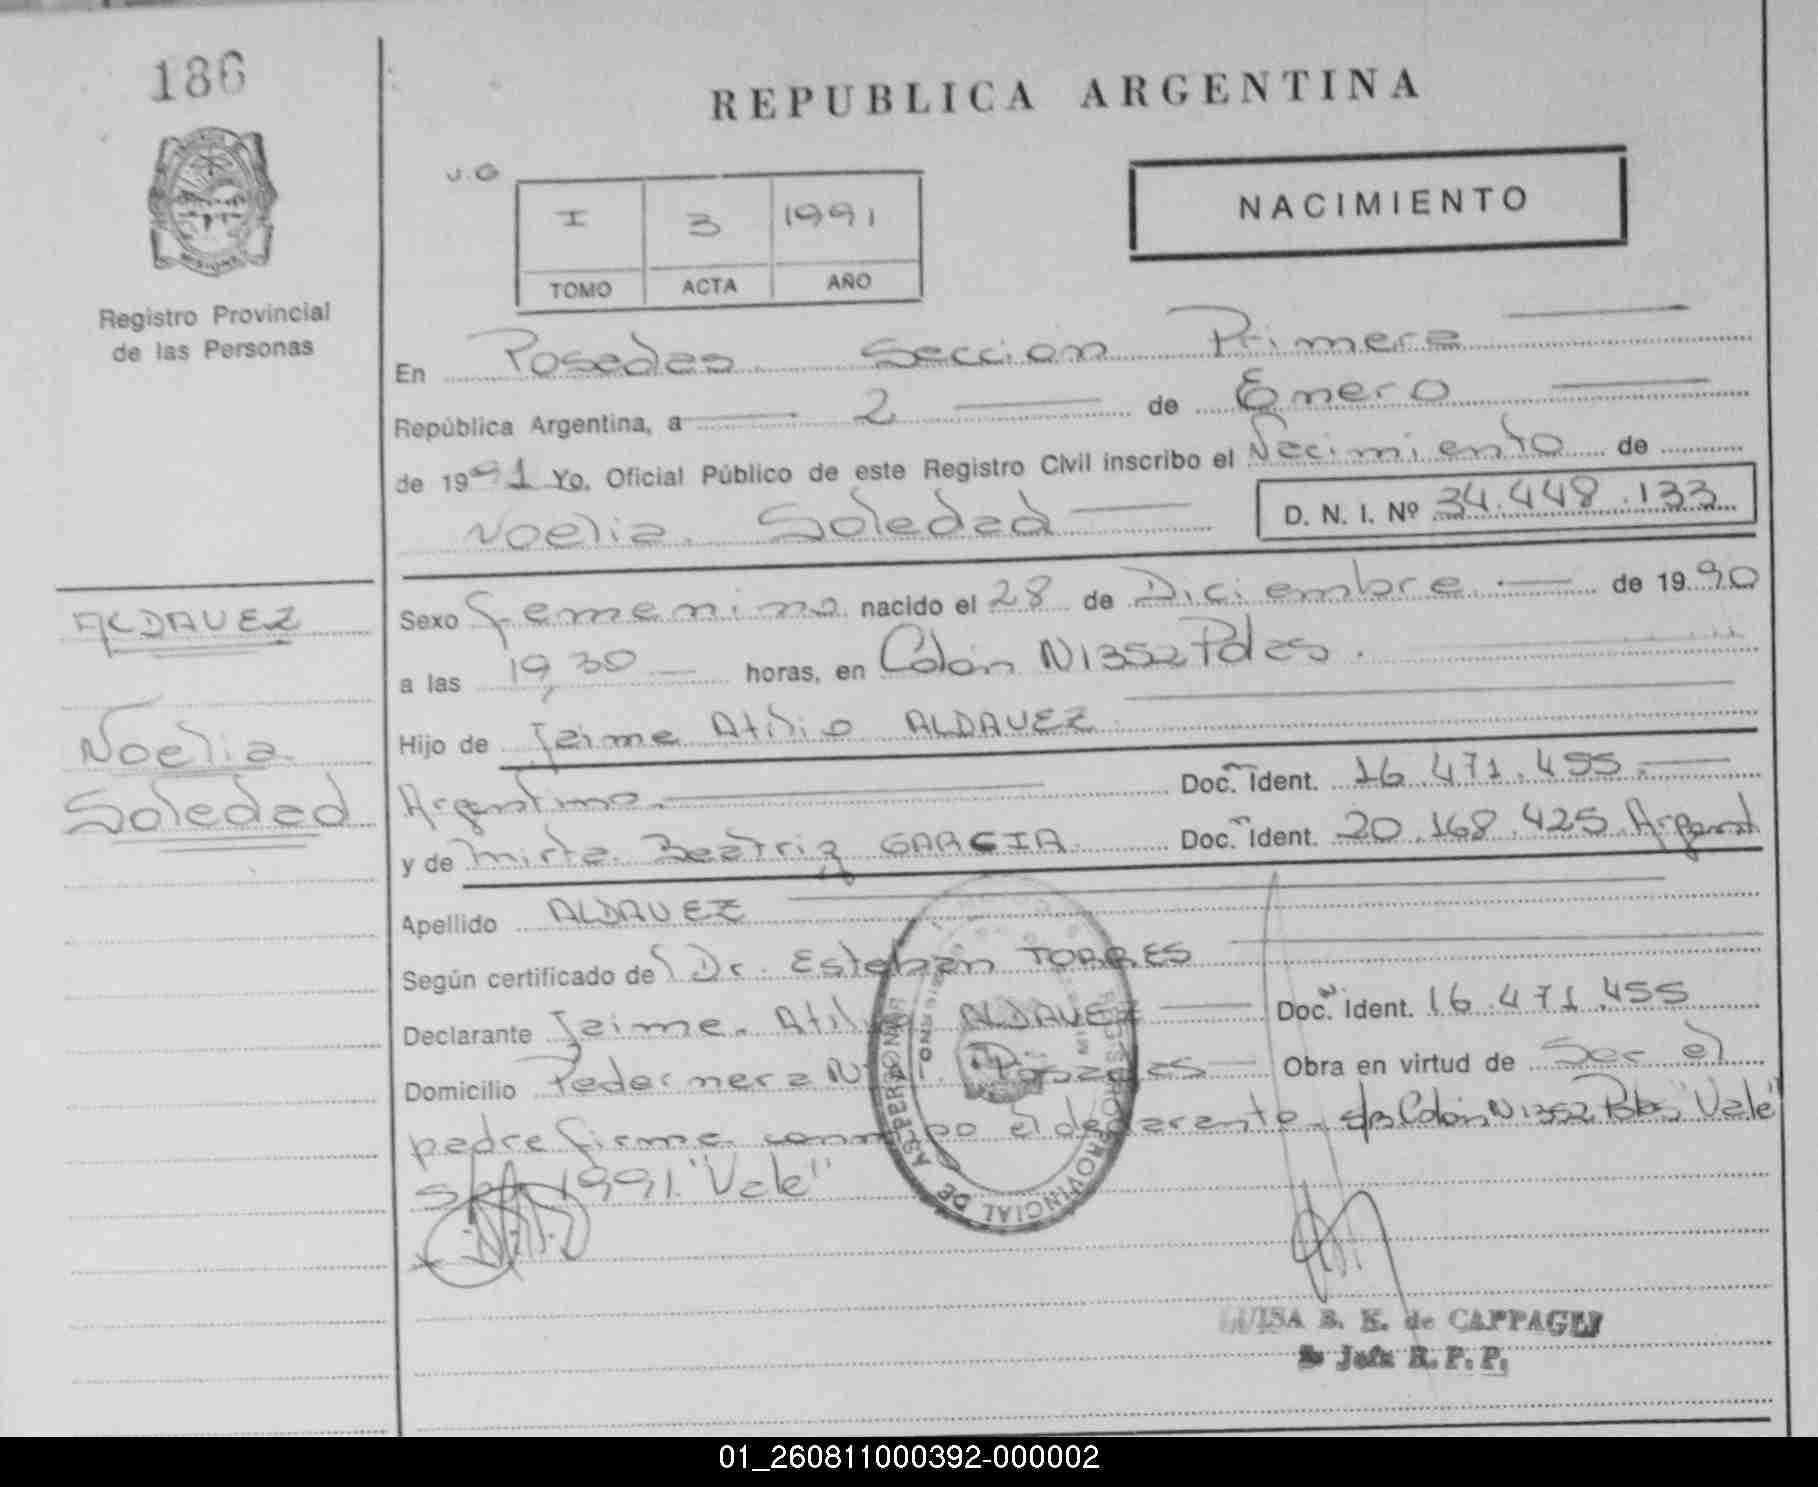 186
REPUBLICA ARGENTINA
NACIMIENTO
J.G
I 3 1991
TOMO ACTA AÑO
Registro Provincial
de las Personas
En Posadas Seccion Primera
República Argentina, a 2 de Enero
de 1991 Yo, Oficial Público de este Registro Civil inscribo el Nacimiento de
Noelia Soledad D. N. I. Nº 34.448.133
ALDAVEZ
Noelia
Soledad
Sexo femenino nacido el 28 de Diciembre de 1990
a las 19,30 horas, en Colón N1352 Pdas.
Hijo de Jaime Atilio ALDAVEZ
Argentino. Doc. Ident. 16.471.455.
y de Mirta Beatriz GARCIA Doc. Ident. 20.168.425 Argent
Apellido ALDAVEZ
Según certificado del Dr. Esteban TORRES
Declarante Jaime Atilio ALDAVEZ Doc. Ident. 16.471.455
Domicilio Pedernera Posadas Obra en virtud de Ser el
padre firma conmigo el declarante. s/b Colón N1352 Pdas "Vale"
1991. "Vale"
PROVINCIAL DE
LUISA B. K. de CAPPAGLI
Jefa R. P. P.
01_260811000392-000002